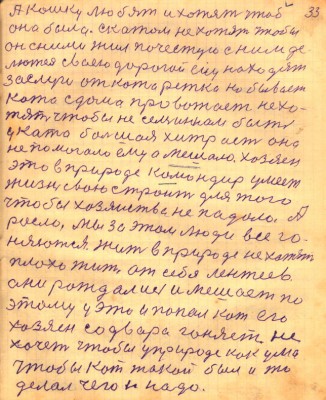 33
А кошку любят и хотят чтоб
она была. с катом не хотят чтобы
он сними жил почестную сними де
лются своею дорогой ему находят
заслуги от ката редка но бывает
Ката с дома провожает не хо-
тят чтобы не семьянам быть
у Ката большая хитраст она
не помогало ему а мешало. Хозяен
это в природе Командир умеет
жизнь свою строит для того
чтобы хозяиства не падало. А
расло, мы за этом люди все го-
няются жит в природе не хатят
плохо жить от себя лентеев
ани рождались и мешает по
этому уэто и попал кот Его
хозяен содвара гоняет не
хочет чтобы у природе как ума
Чтобы Кот такой был и то
делал чего н надо.